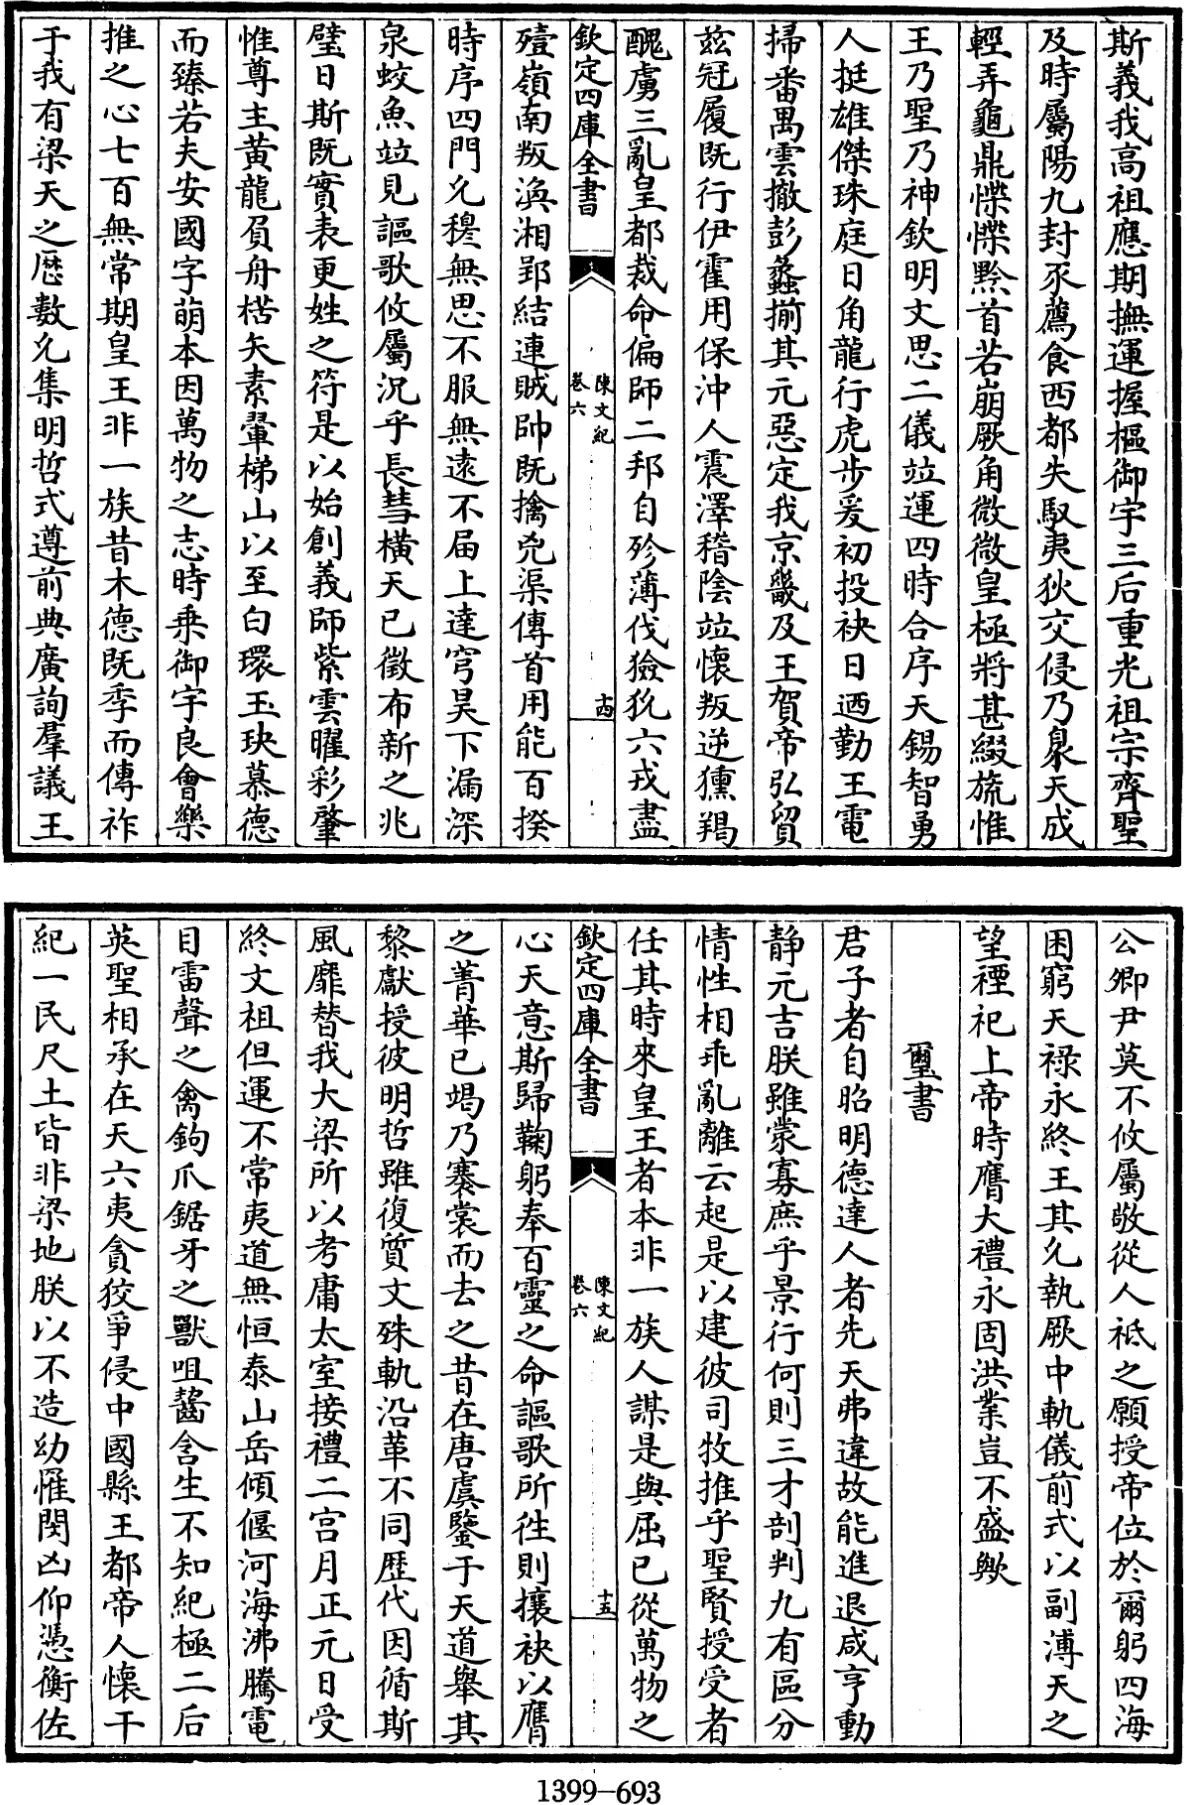 斯義我高祖應期撫運握樞御宇三后重光祖宗齊聖
及時屬陽九封豕薦食西都失馭夷狄交侵乃泉天成
輕弄龜鼎惵惵黔首若崩厥角微微皇極將甚綴旒惟
王乃聖乃神欽明文思二儀竝運四時合序天錫智勇
人挺雄傑珠庭日角龍行虎步爰初投袂日迺勤王電
掃番禺雲撤彭蠡揃其元惡定我京畿及王賀帝弘貿
兹冠履既行伊霍用保沖人震澤稽陰竝懷叛逆獯羯
醜虜三亂皇都裁命偏師二邦自殄薄伐獫狁六戎盡
欽定四庫全書
陳文紀
卷六
十四
殪嶺南叛渙湘郢結連賊帥既擒兇渠傳首用能百揆
時序四門允穆無思不服無遠不届上達穹昊下漏深
泉蛟魚竝見謳歌攸屬況乎長彗橫天已徵布新之兆
璧日斯既實表更姓之符是以始創義師紫雲曜彩肇
惟尊主黄龍負舟楛矢素翬梯山以至白環玉玦慕德
而臻若夫安國字萌本因萬物之志時乘御宇良會樂
推之心七百無常期皇王非一族昔木德既季而傳祚
于我有梁天之歴數允集明哲式遵前典廣詢羣議王
公卿尹莫不攸屬敬從人祗之願授帝位於爾躬四海
困窮天禄永終王其允執厥中軌儀前式以副溥天之
望禋祀上帝時膺大禮永固洪業豈不盛歟
璽書
君子者自昭明德達人者先天弗違故能進退咸亨動
静元吉朕雖蒙寡庶乎景行何則三才剖判九有區分
情性相乖亂離云起是以建彼司牧推乎聖賢授受者
任其時來皇王者本非一族人謀是與屈已從萬物之
欽定四庫全書
陳文紀
卷六
十五
心天意斯歸鞠躬奉百靈之命謳歌所往則攘袂以膺
之菁華已竭乃褰裳而去之昔在唐虞鑒于天道舉其
黎獻授彼明哲雖復質文殊軌沿革不同歴代因循斯
風靡替我大梁所以考庸太室接禮二宫月正元日受
終文祖但運不常夷道無恒泰山岳傾偃河海沸騰電
目雷聲之禽鉤爪鋸牙之獸咀齧含生不知紀極二后
英聖相承在天六夷貪狡爭侵中國縣王都帝人懷干
紀一民尺土皆非梁地朕以不造幼罹閔凶仰憑衡佐
1399-693